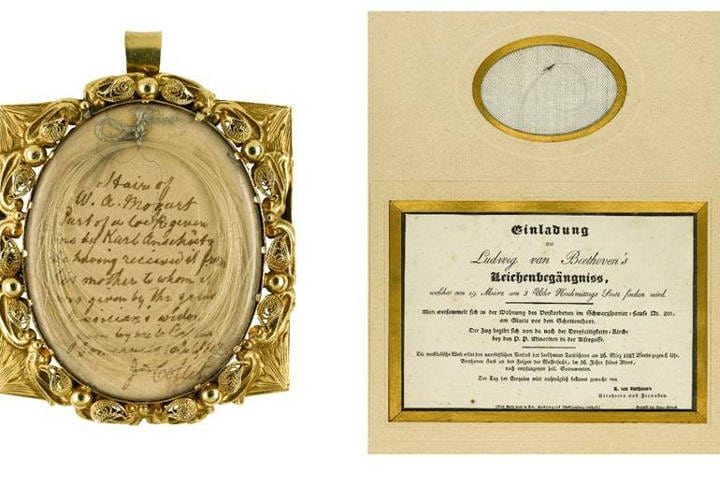 Hair of
W. A. Mozart
Part of a lock given
me by Karl Anschütz
having received it from
his mother to whom it
was given by the
widow
Einladung
zu
Ludwig van Beethoven's
Leichenbegängniss,
welches am 29. März um 3 Uhr Nachmittags Statt finden wird.
Man versammelt sich in der Wohnung des Verstorbenen im Schwarzspanier-Hause Nr. 200,
am Glacis vor dem Schottenthore.
Der Zug begibt sich von da nach der Dreyfaltigkeits-Kirche
bey den P. P. Minoriten in der Alsergasse.
Die musikalische Welt erlitt den unersetzlichen Verlust des berühmten Tondichters am 26. März 1827 Abends gegen 6 Uhr.
Beethoven starb an den Folgen der Wassersucht, im 56. Jahre seines Alters,
nach empfangenen heil. Sacramenten.
Der Tag der Exequien wird nachträglich bekannt gemacht von
L. van Beethoven's
Verehrern und Freunden.